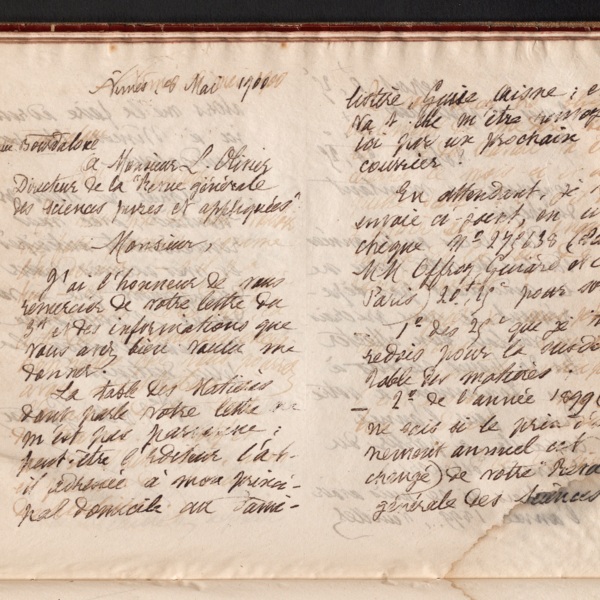 Nîmes 8 Mai 1900
rue Bourdaloue
à Monsieur L. Olivier
Directeur de la "Revue générale
des Sciences pures et appliquées"
Monsieur,
J'ai l'honneur de vous
remercier de votre lettre du
3 et des informations que
vous avez bien voulu me
donner.
La table des Matières
dont parle votre lettre ne
m'est pas parvenue ;
peut-être l'éditeur l'a-t-
il adressée à mon princi-
pal domicile au
caisne ; e
va-t-elle m'être
ici par un prochain
courrier !
En attendant, je
envoie ci-joint, en
chèque Nº 279838
MM Offroy Guiard et C
Paris) pour
1º des que je
redois pour la
table des matières
_ 2º de l'année 1899
ne sais si le prix
nement annuel est
changé) de votre Revue
générale des Sciences